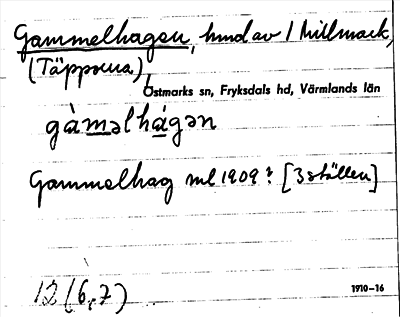 Gammelhagen, hmd av 1 Millmark,
(Täpporna)
Östmarks sn, Fryksdals hd, Värmlands län
gàməlhágən
Gammelhag ml 1909? [3 ställen]
12 (6,7)
1910–16